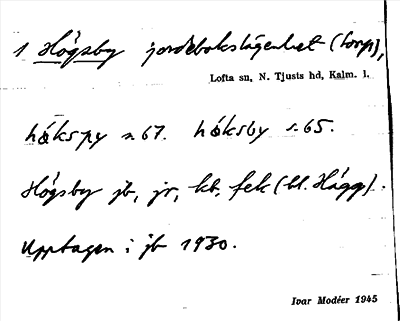 1 Högsby jordebokslägenhet (torp),
Lofta sn, N. Tjusts hd, Kalm. l.
håkspy s. 67. håksby s. 65.
Högsby jb, jr, kb, fek (bl. Hägg).
Upptagen i jb 1930.
Ivar Modéer 1945